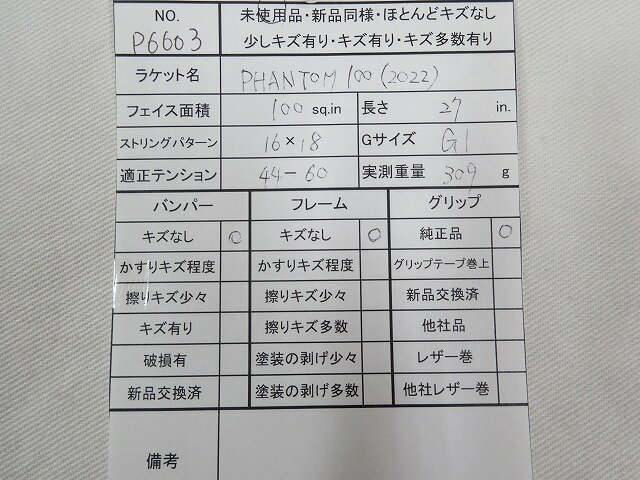 NO. 未使用品・新品同様・ほとんどキズなし
P6603 少しキズ有り・キズ有り・キズ多数有り
ラケット名 PHANTOM 100 (2022)
フェイス面積 100 sq.in 長さ 27 in.
ストリングパターン 16×18 Gサイズ G1
適正テンション 44-60 実測重量 309 g
バンパー フレーム グリップ
キズなし ○ キズなし ○ 純正品 ○
かすりキズ程度 かすりキズ程度 グリップテープ巻上
擦りキズ少々 擦りキズ少々 新品交換済
キズ有り 擦りキズ多数 他社品
破損有 塗装の剥げ少々 レザー巻
新品交換済 塗装の剥げ多数 他社レザー巻
備考